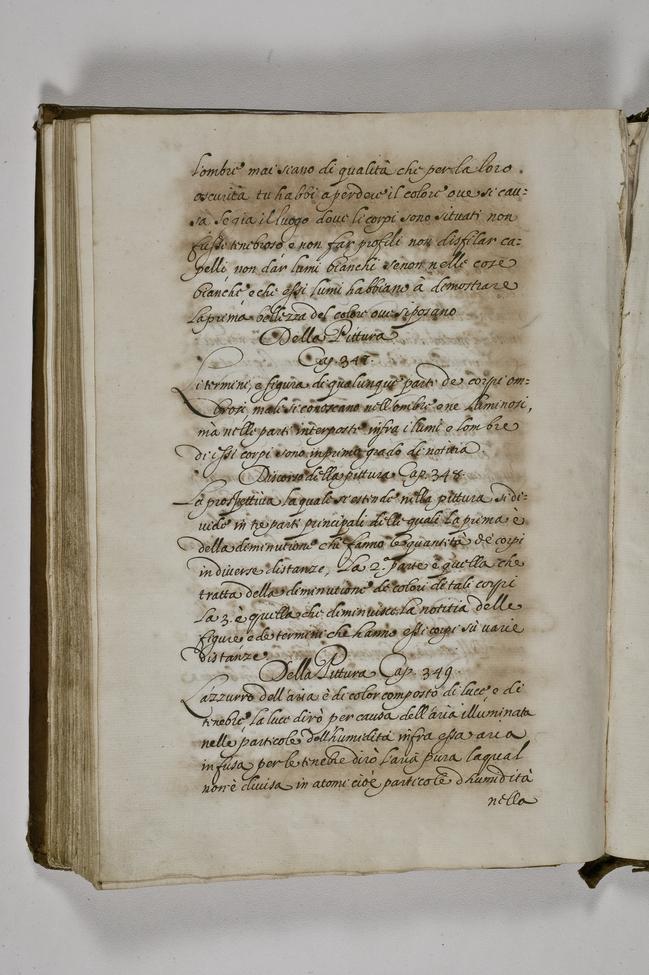 l'ombre mai siano di qualità che per la loro
oscurità tu habbi a perdere il colore oue si cau=
sa se gia il luogo doue li corpi sono situati non
fusse tenebroso e non far profili non disfilar ca=
pelli non dar lumi bianchi senon nelle cose
bianche, e che essi lumi habbiano à demostrare
la prima bellezza del colore oue si posano
Della Pittura
Cap. 347.
Li termini, e figura di qualunque parte de corpi om=
brosi male si conoscano nell'ombre e ne luminosi,
mà nelle parti interposte infra i lumi e l'ombre
di essi corpi sono in primo grado di notitia.
Discorso della pittura Cap. 348.
La prospettiua la quale si estende nella pittura si di=
uide in tre parti principali delle quali la prima è
della deminutione che fanno le quantità de corpi
in diuerse distanze, La 2.ª parte è quella che
tratta della diminutione de colori di tali corpi
La 3. è quella che diminuisce la notitia delle
figure e de termini che hanno essi corpi sù varie
distanze
Della Pittura Cap. 349
L'azzurro dell'aria è di color composto di luce e di
tenebre, la luce dirò per causa dell'aria illuminata
nelle particole dell'humidità infra essa aria
infusa per le tenebre dirò l'aria pura la qual
non è diuisa in atomi cioè particole d'humidità
nella